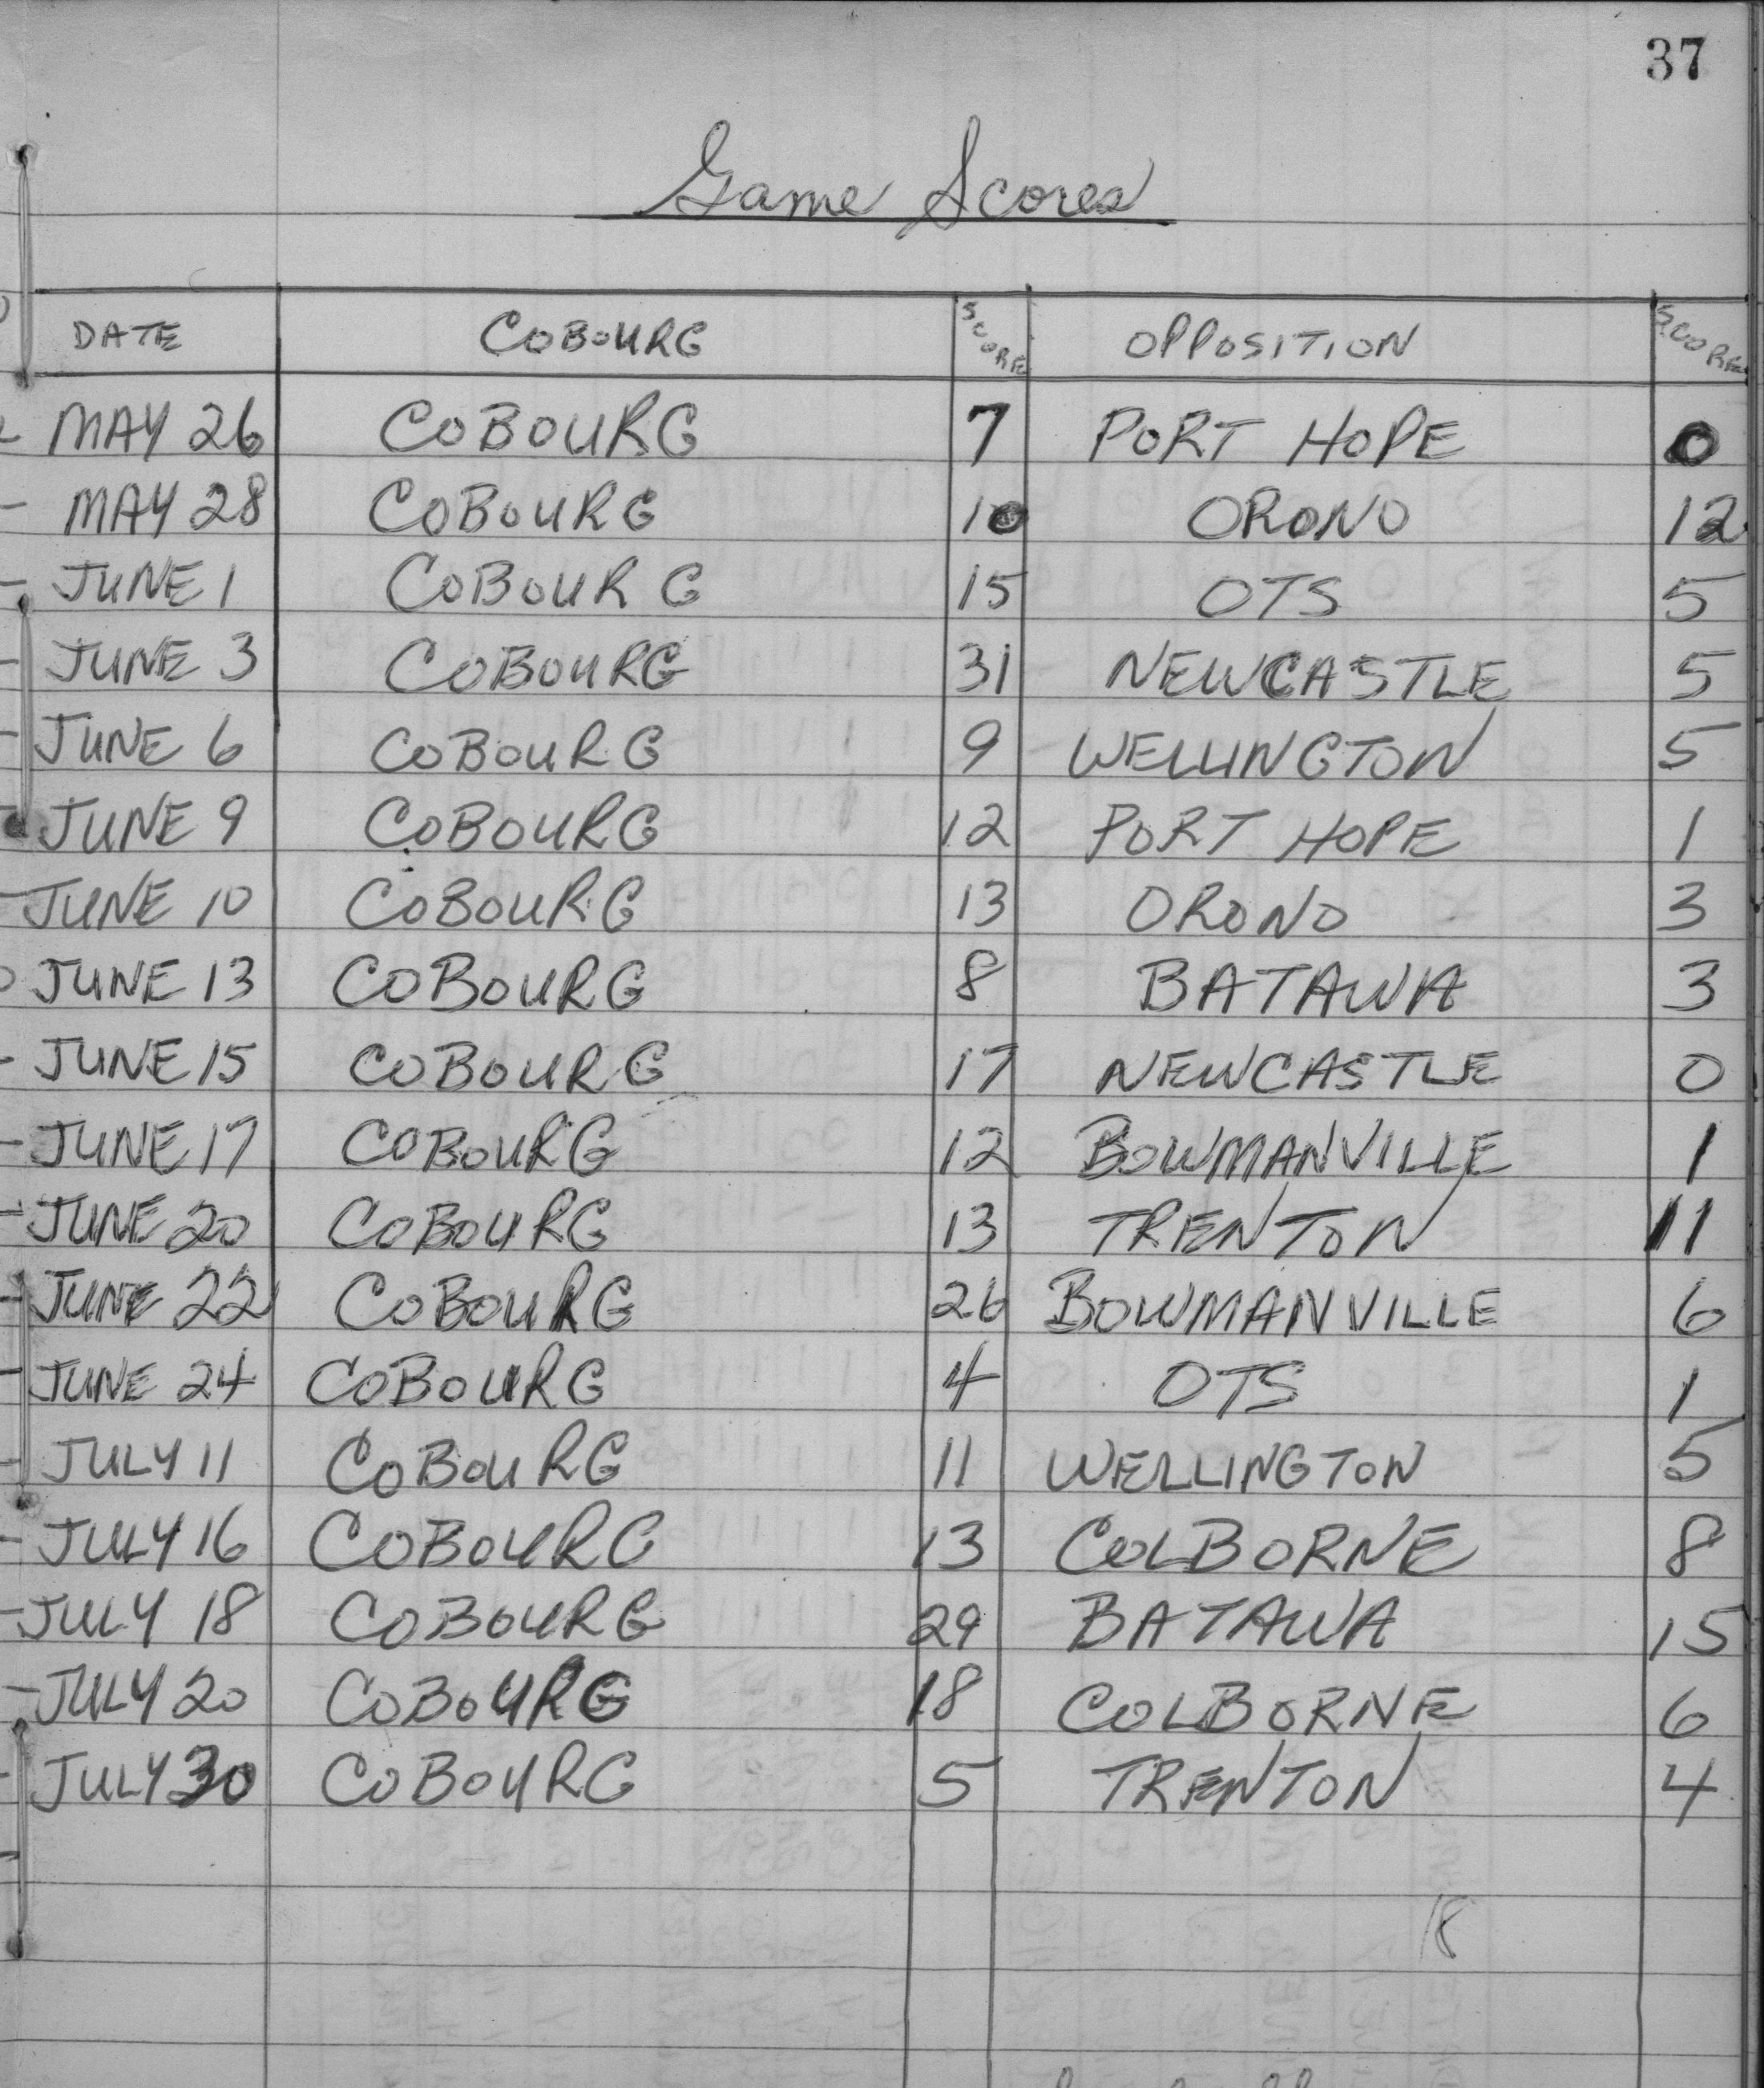 37
Game Scores
DATE COBOURG SCORE OPPOSITION SCORE
MAY 26 COBOURG 7 PORT HOPE 0
MAY 28 COBOURG 10 ORONO 12
JUNE 1 COBOURG 15 OTS 5
JUNE 3 COBOURG 31 NEWCASTLE 5
JUNE 6 COBOURG 9 WELLINGTON 5
JUNE 9 COBOURG 12 PORT HOPE 1
JUNE 10 COBOURG 13 ORONO 3
JUNE 13 COBOURG 8 BATAWA 3
JUNE 15 COBOURG 17 NEWCASTLE 0
JUNE 17 COBOURG 12 BOWMANVILLE 1
JUNE 20 COBOURG 13 TRENTON 11
JUNE 22 COBOURG 26 BOWMANVILLE 6
JUNE 24 COBOURG 4 OTS 1
JULY 11 COBOURG 11 WELLINGTON 5
JULY 16 COBOURG 13 COLBORNE 8
JULY 18 COBOURG 29 BATAWA 15
JULY 20 COBOURG 18 COLBORNE 6
JULY 30 COBOURG 5 TRENTON 4
18